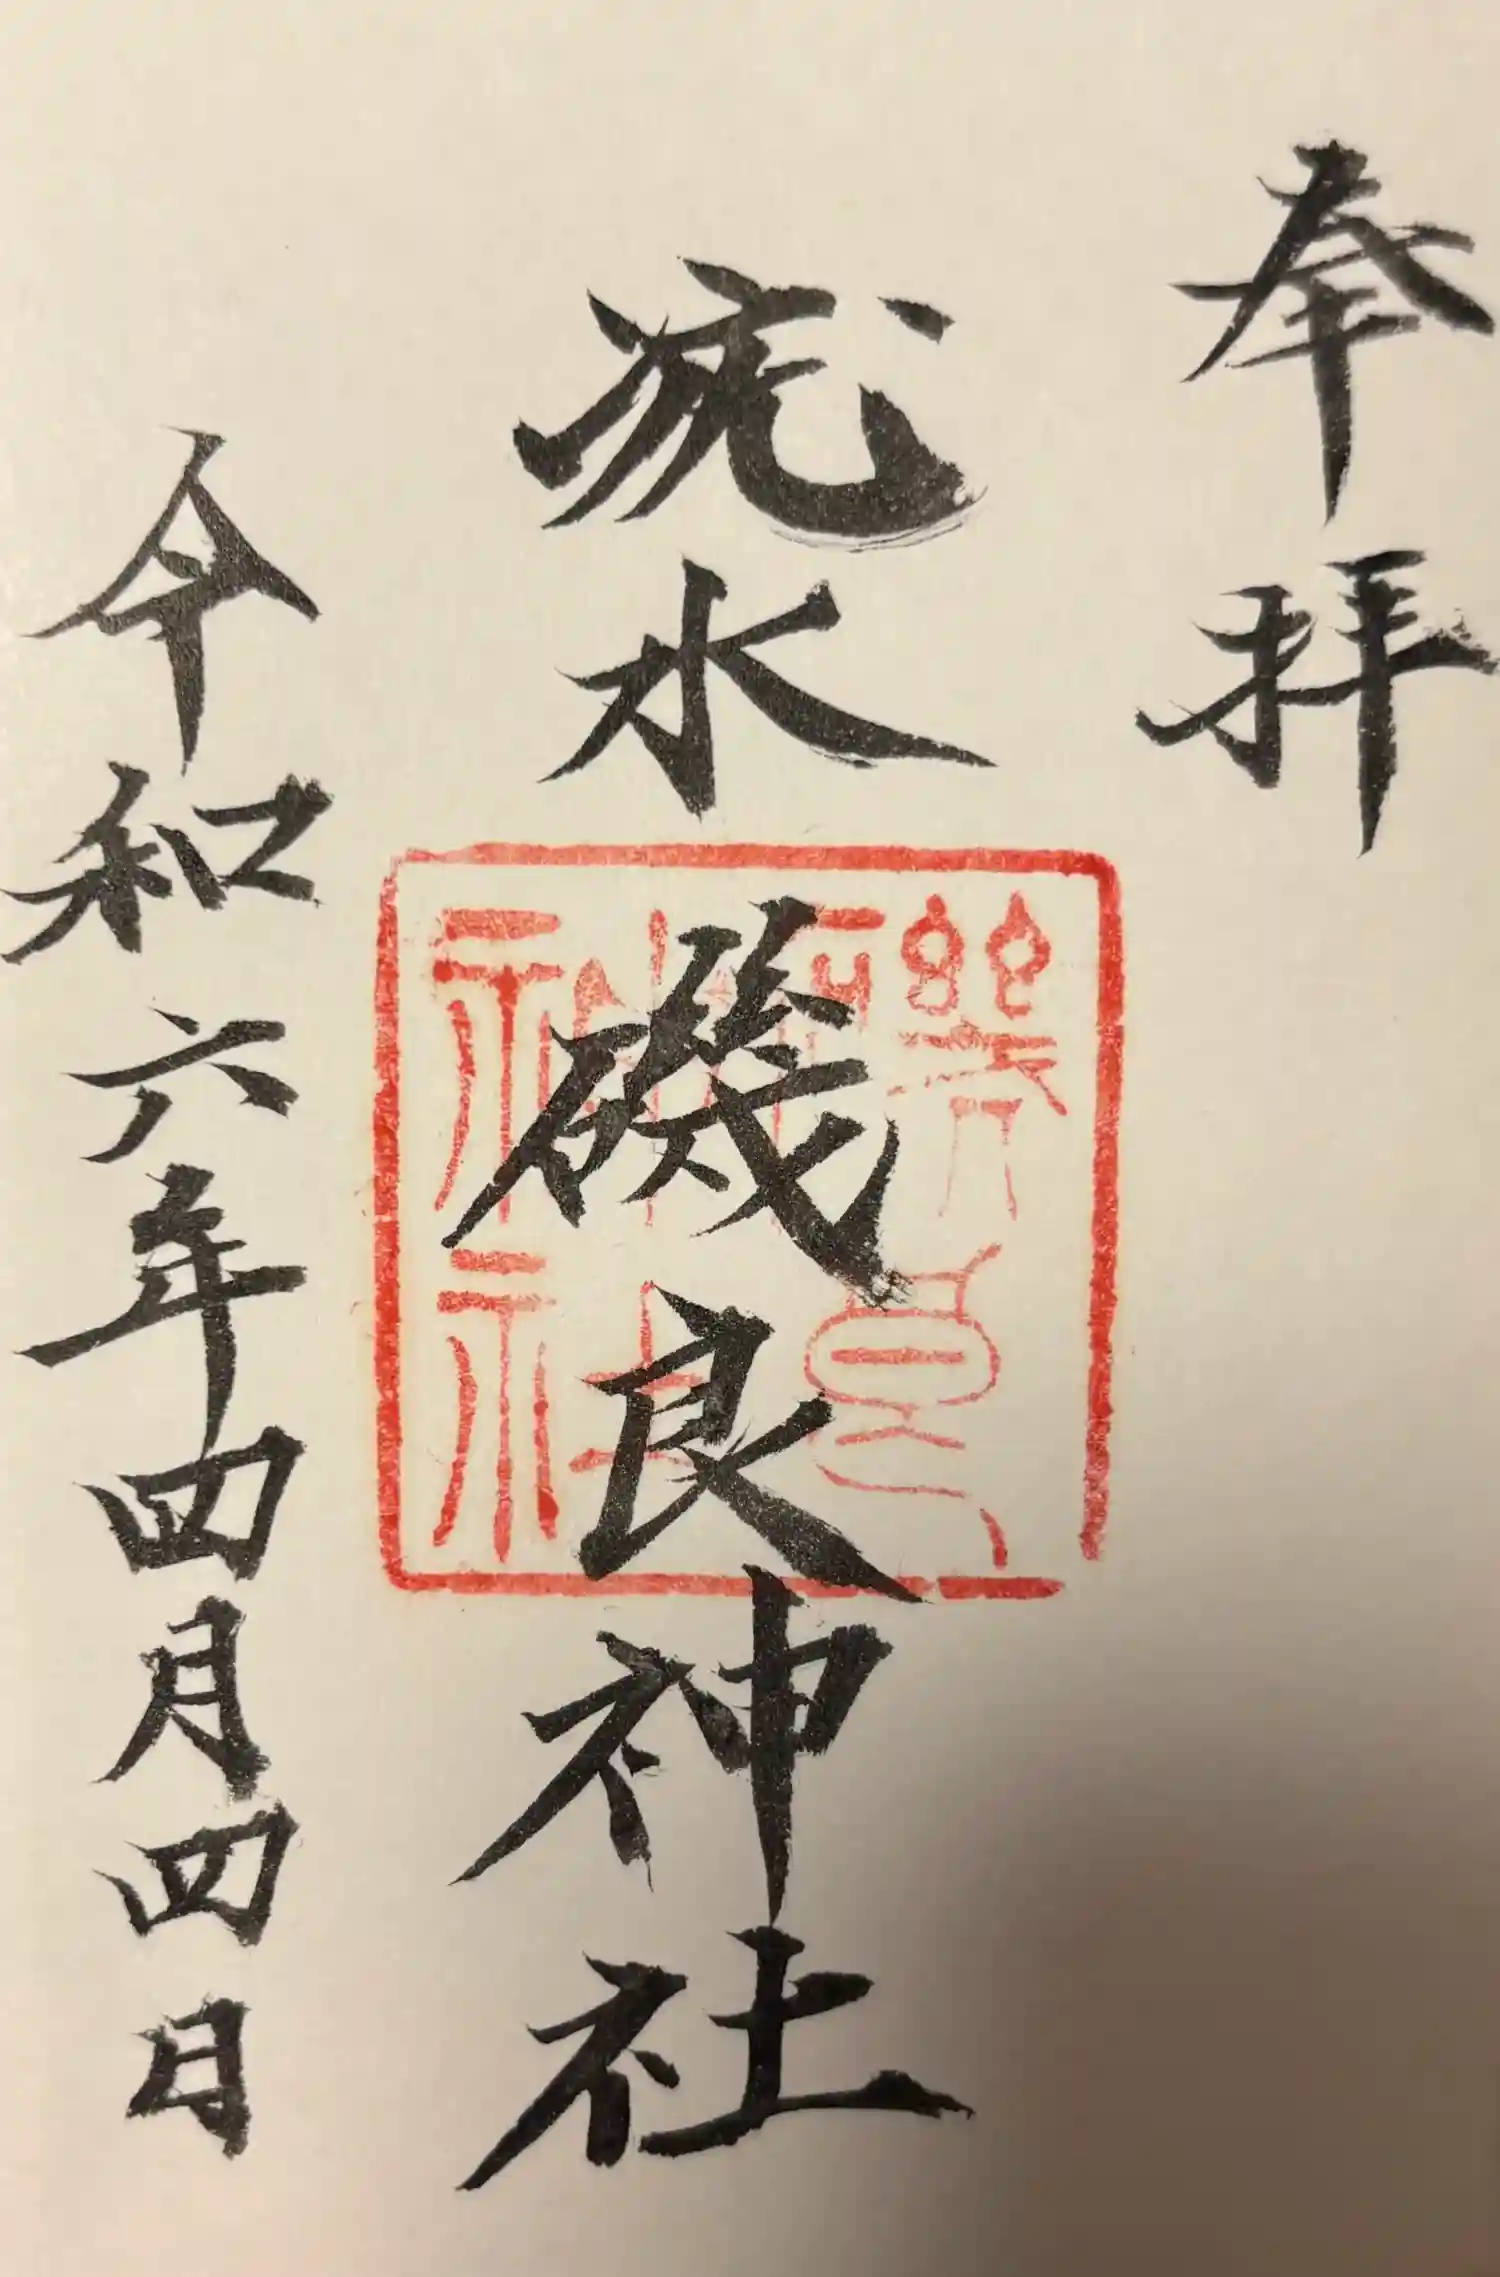 奉拝
疣水磯良神社
磯良
神社
令和六年四月四日